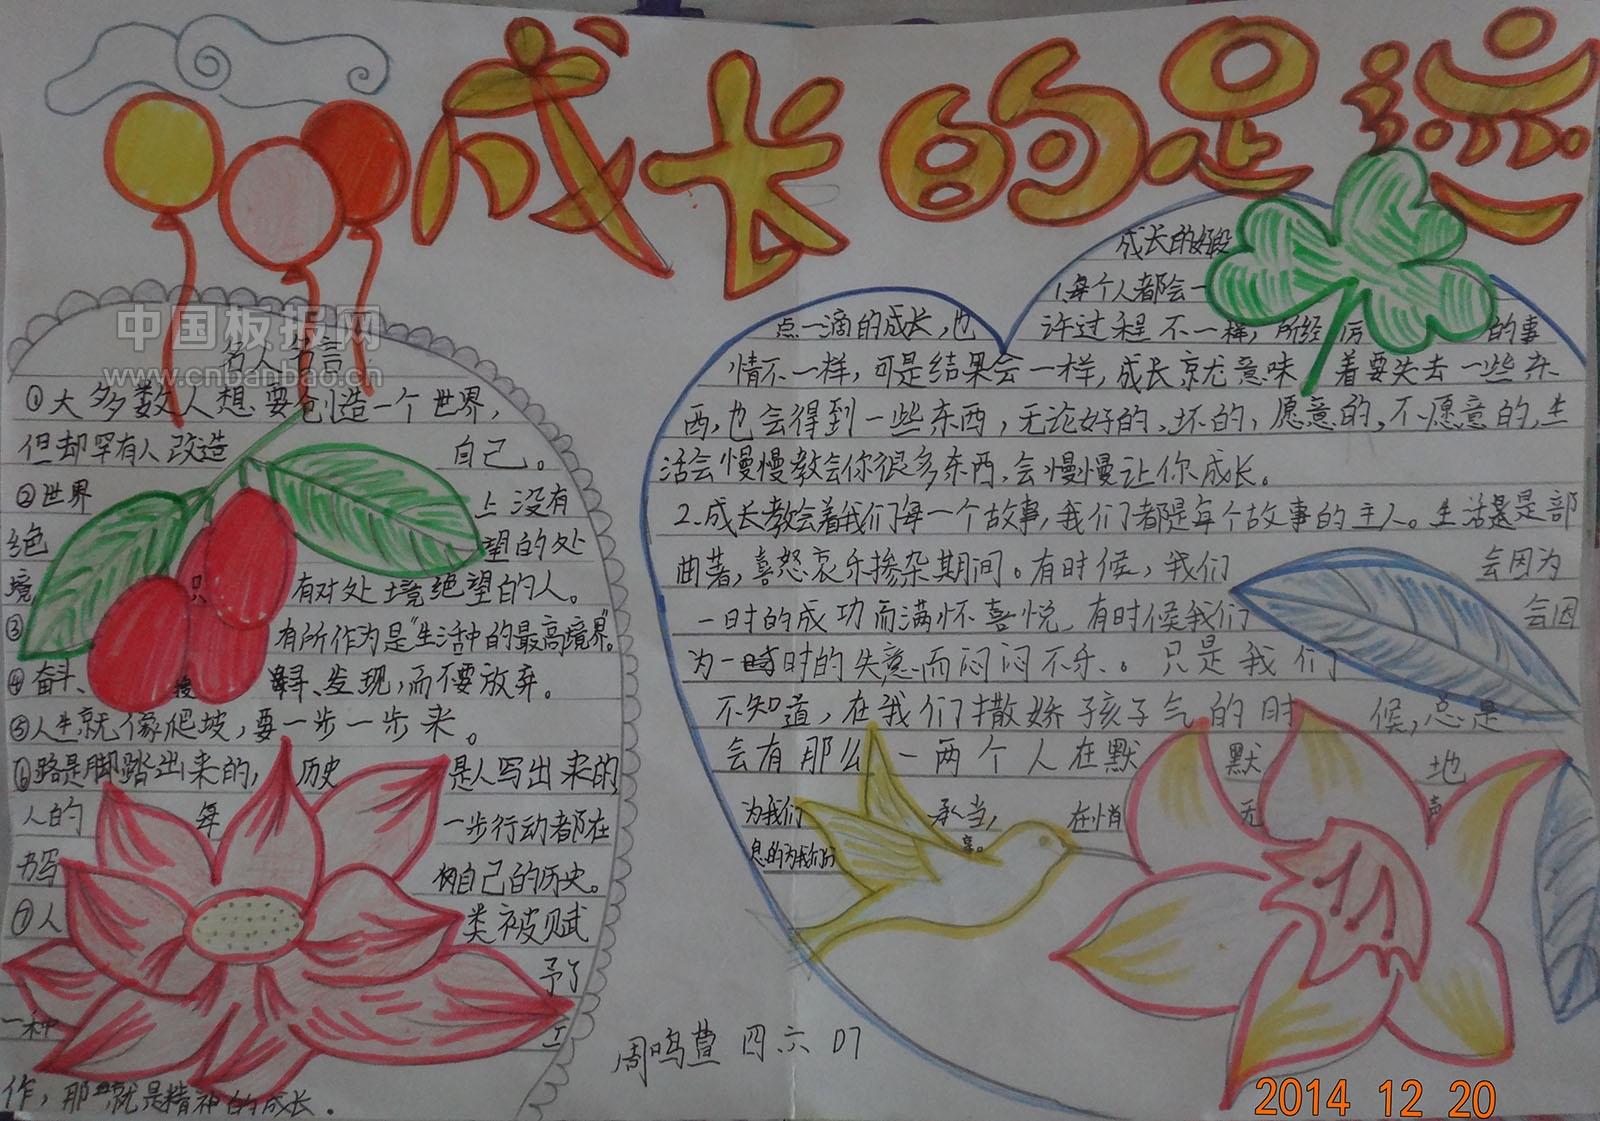 成长的足迹
中国板报网
www.cnbanbao.cn
名人名言
①大多数人想要创造一个世界，
但却罕有人改造自己。
②世界上没有
绝望的处
境，只有对处境绝望的人。
③有所作为是"生活中的最高境界"。
④奋斗、寻、发现，而不要放弃。
⑤人生就像爬坡，要一步一步来。
⑥路是脚踏出来的，历史是人写出来的
人的每一步行动都在
书写自己的历史。
⑦人类被赋
予了
一种工
作，那就是精神的成长。
成长的好段
1.每个人都会一
点一滴的成长，也许过程不一样，所经历的事
情不一样，可是结果会一样，成长就尤意味着要失去一些东
西，也会得到一些东西，无论好的、坏的，愿意的，不愿意的，生
活会慢慢教会你很多东西，会慢慢让你成长。
2、成长教会着我们每一个故事，我们都是每个故事的主人。生活是部
曲著，喜怒哀乐掺杂期间。有时候，我们会因为
一时的成功而满怀喜悦，有时候我们会因
为一时的失意而闷闷不乐、。只是我们
不知道，在我们撒娇孩子气的时候，总是
会有那么一两个人在默默地
为我们承当，在悄无声
息的为我们分享。
周鸣萱 四六 07
2014 12 20